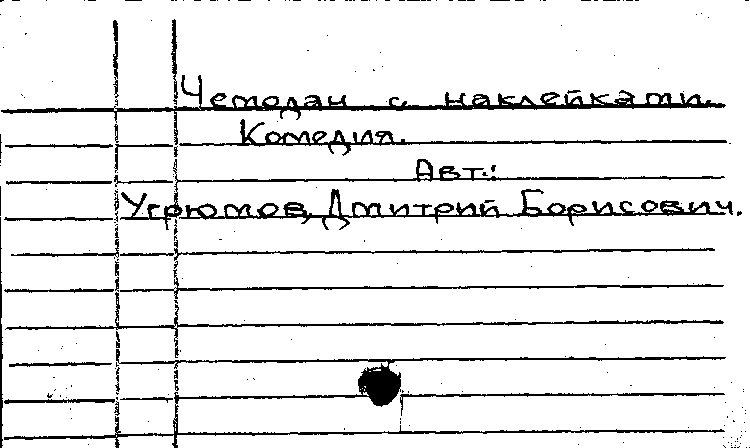 Чемодан с наклейками.
Комедия.
Авт.:
Угрюмов, Дмитрий Борисович.